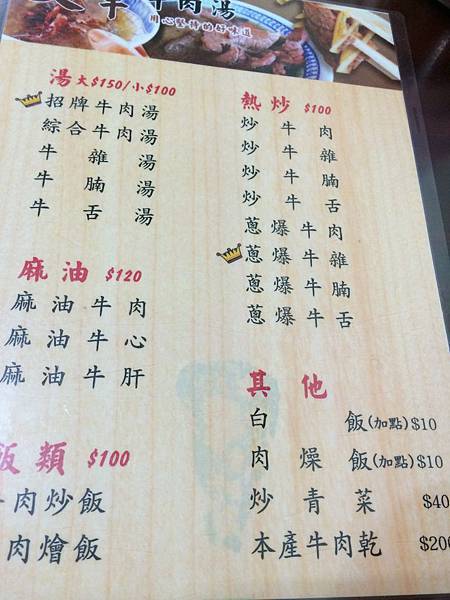 牛肉湯
用心堅持的好味道
湯 大$150/小$100
招牌牛肉湯
綜合牛肉湯
牛雜湯
牛腩湯
牛舌湯
麻油 $120
麻油牛肉
麻油牛心
麻油牛肝
飯類 $100
牛肉炒飯
肉燴飯
熱炒 $100
炒牛肉
炒牛雜
炒牛腩
炒牛舌
蔥爆牛肉
蔥爆牛雜
蔥爆牛腩
蔥爆牛舌
其他
白飯(加點)$10
肉燥飯(加點)$10
炒青菜 $40
本產牛肉乾 $200